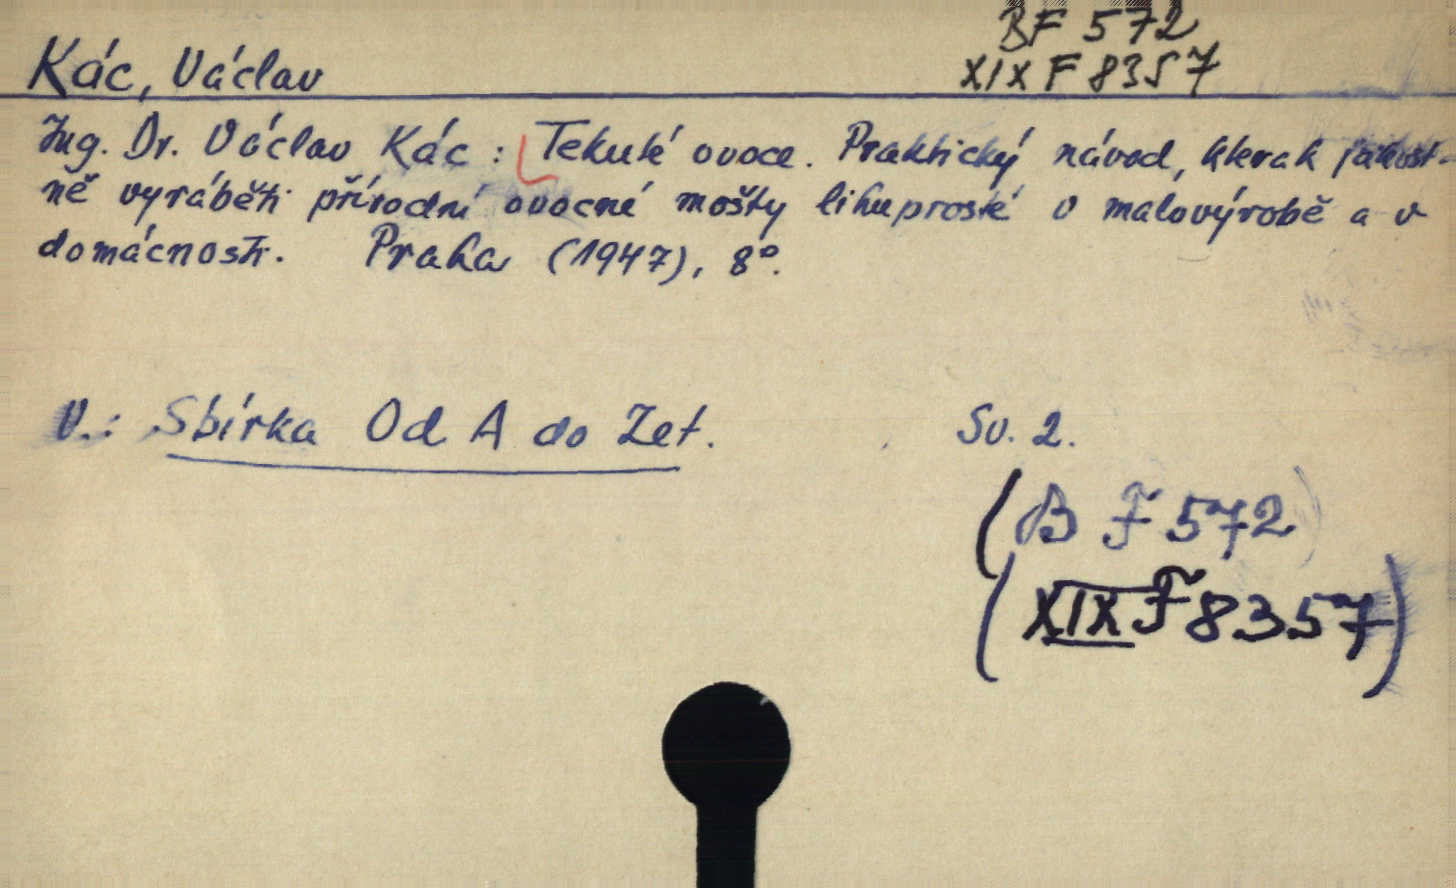 BF 572
Kác, Václav
XIX F 8357
Ing. Dr. Václav Kác: Tekuté ovoce. Praktický návod, kterak jakost-
ně vyráběti přírodní ovocné mošty lihuprosté v malovýrobě a v
domácnosti. Praha (1947), 8°.
V.: Sbírka Od A do Zet. Sv. 2.
(B F 572)
(XIX F 8357)